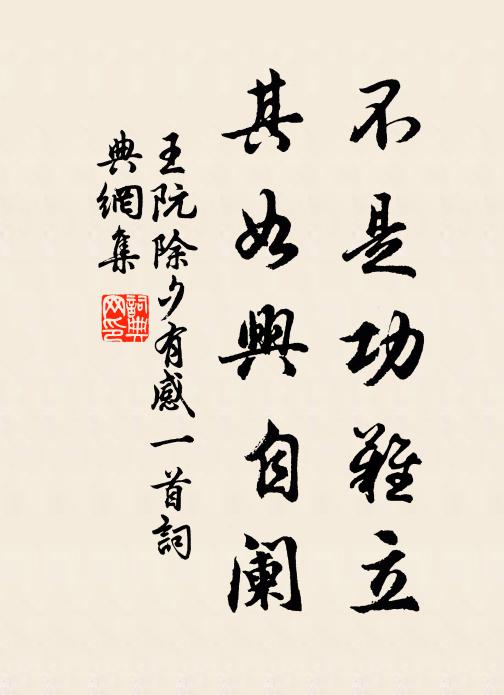 不是功難立
其如興自阑
王阮除夕有感一首詞
典網集
詞典
网印